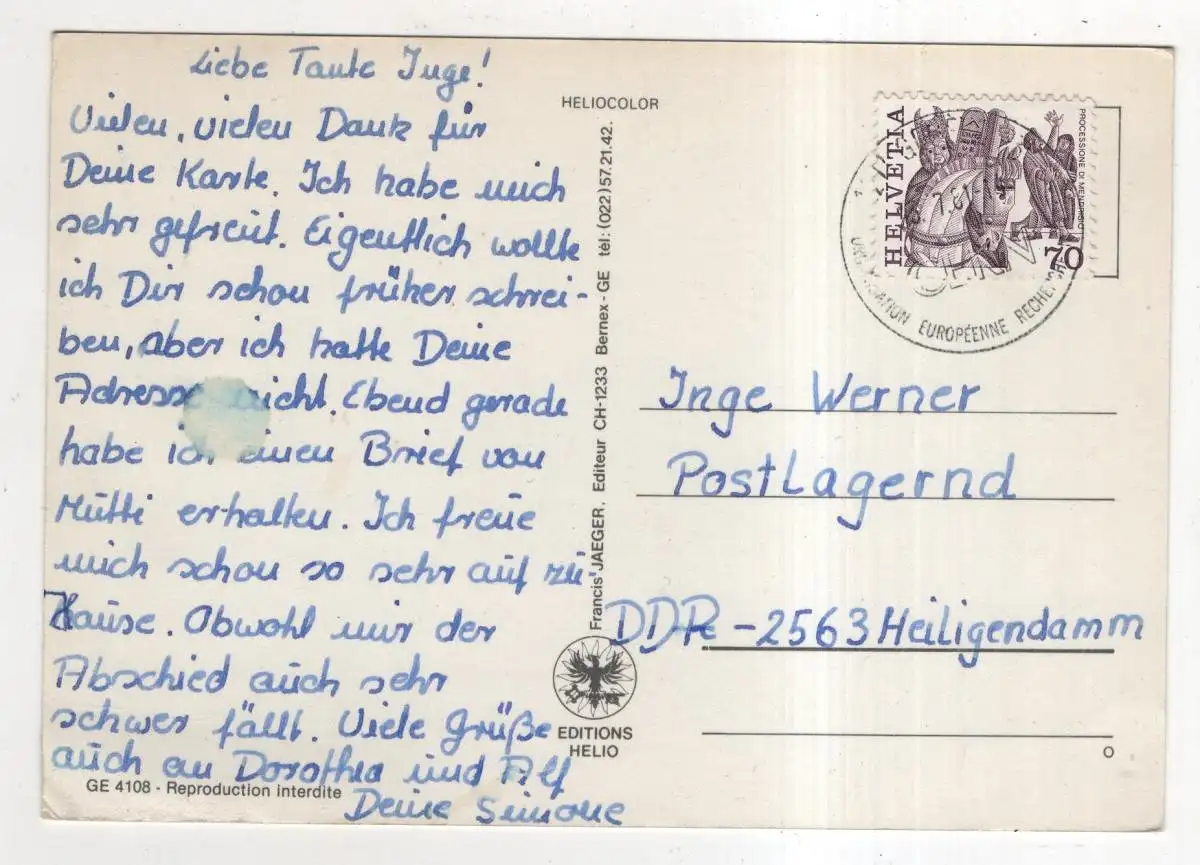 Liebe Tante Inge!
Vielen, vielen Dank für
Deine Karte. Ich habe mich
sehr gefreut. Eigentlich wollte
ich Dir schon früher schrei-
ben, aber ich hatte Deine
Adresse nicht. Ebend gerade
habe ich einen Brief von
Mutti erhalten. Ich freue
mich schon so sehr auf zu-
Hause. Obwohl mir der
Abschied auch sehr
schwer fällt. Viele Grüße
auch an Dorothea und Alf
Deine Simone
GE 4108 - Reproduction interdite
HELIOCOLOR
Francis JAEGER, Editeur CH-1233 Bernex - GE tél: (022) 57.21.42.
EDITIONS
HELIO
HELVETIA
PROCESSIONE DI MENDRISIO
70
ORGANISATION EUROPÉENNE RECHERCHE
Inge Werner
Postlagernd
DDR - 2563 Heiligendamm